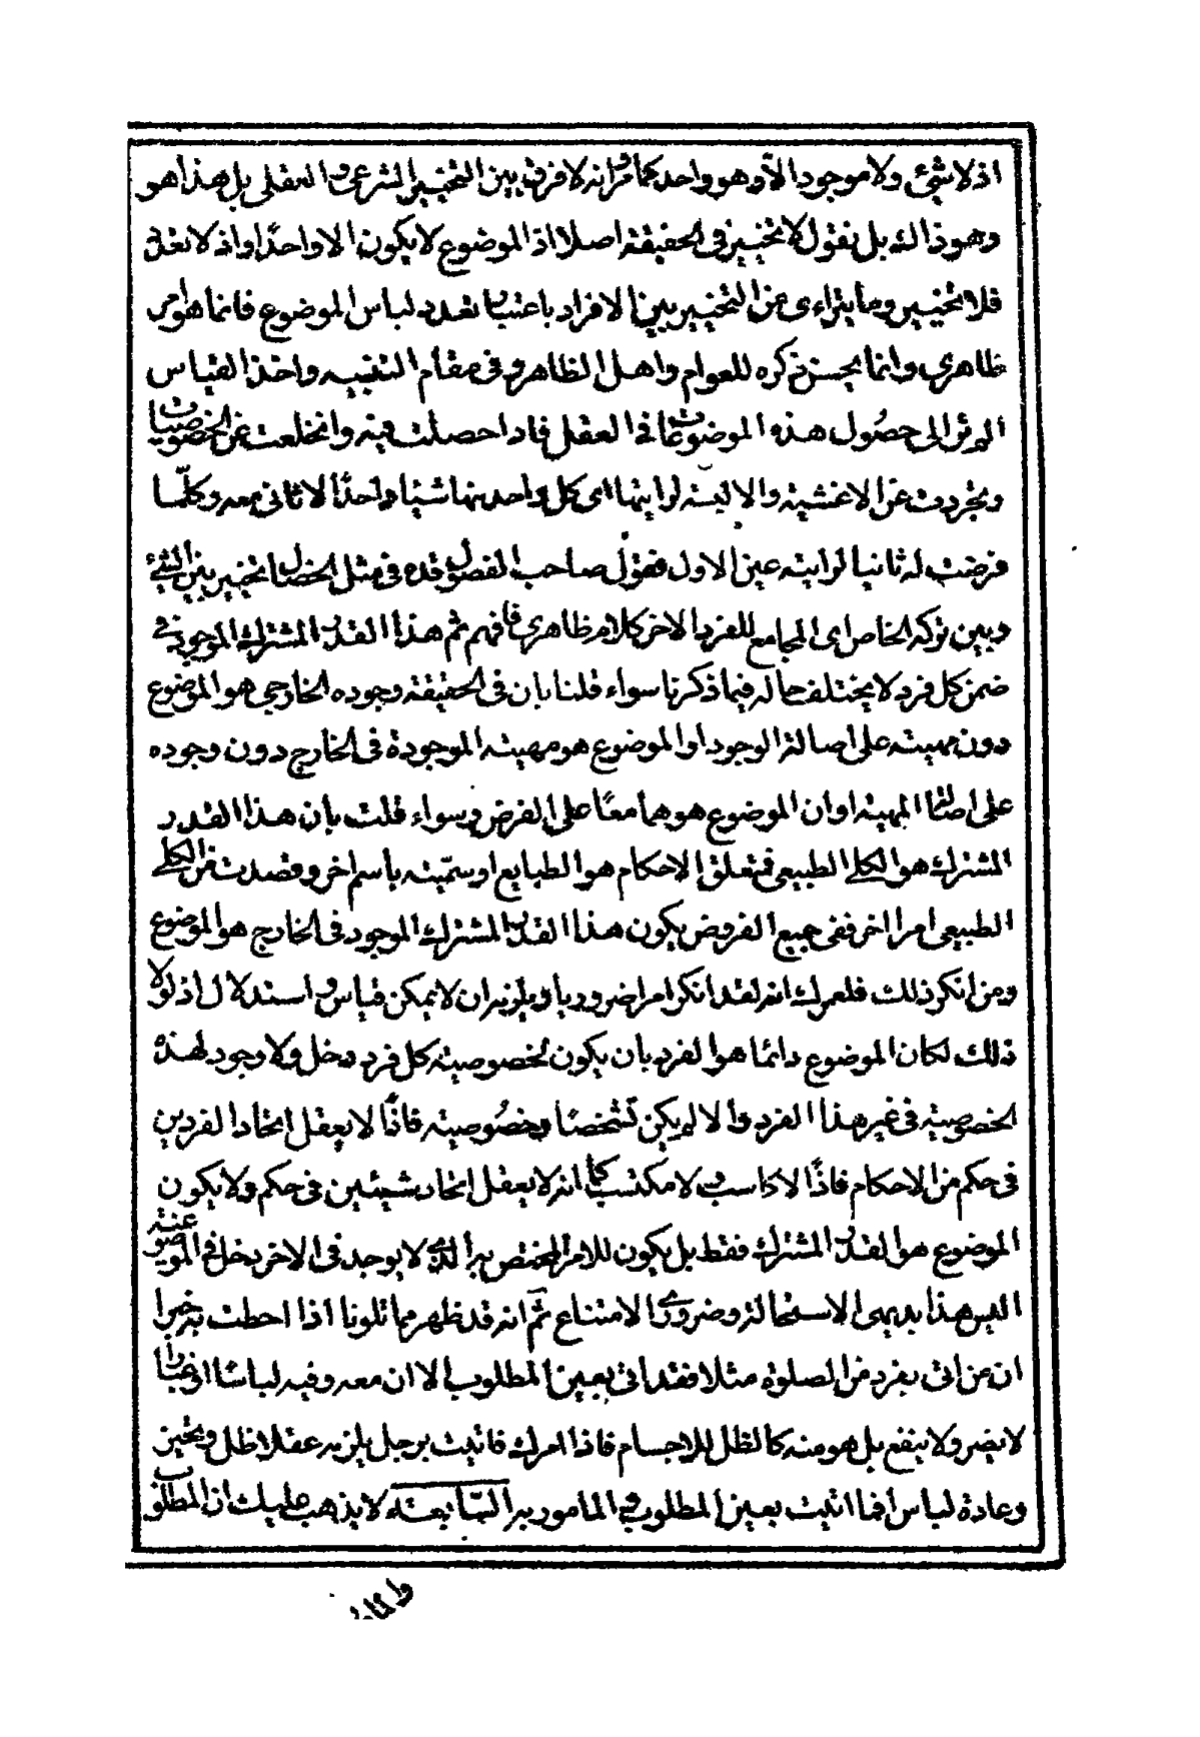 اذ لا شئ ولا موجود الا وهو واحد كما مر وانه لا فرق بين التخيير الشرعى والعقلى بل هذا هو
وهو ذاك بل نقول لا تخيير فى الحقيقة اصلا اذ الموضوع لا يكون الا واحدًا واذ لا تعدد
فلا تخيير وما يتراءى من التخيير بين الافراد باعتبار تعدد لباس الموضوع فانما هو امر
ظاهرى وانما يحسن ذكره للعوام واهل الظاهر وفى مقام التنبيه واخذ القياس
الموثر الى حصول هذه الموضوعات فى العقل فاذا حصلت فيه وانخلعت عن الخصوصيات
وتجردت عن الاغشية والالبسة لرايتها اى كل واحد منها شيئا واحدًا لا ثانى معه وكلّما
فرضت له ثانيا لرايته عين الاول فقول صاحب الفصول قده فى مثل الخصال تخيير بين الشئ
وبين تركه الخاص اى المجامع للفرد الاخر كلام ظاهرى فافهم ثم هذا القدر المشترك الموجود فى
ضمن كل فرد لا يختلف حاله فيما ذكرنا سواء قلنا بان فى الحقيقة وجوده الخارجى هو الموضوع
دون مهيته على اصالة الوجود او الموضوع هو مهيته الموجودة فى الخارج دون وجوده
على اصالة المهية او ان الموضوع هو هما معًا على الفرض وسواء قلت بان هذا القدر
المشترك هو الكلى الطبيعى فمتعلق الاحكام هو الطبايع او سمّيته باسم اخر وقصدت من الكلى
الطبيعى امرا اخر ففى جميع الفروض يكون هذا القدر المشترك الموجود فى الخارج هو الموضوع
ومن انكر ذلك فلعمرك انه لقد انكر امرا ضروريا ويلزمه ان لا يمكن قياس واستدلال اذ لولا
ذلك لكان الموضوع دائما هو الفرد بان يكون لخصوصية كل فرد دخل ولا وجود لهذه
الخصوصية فى غير هذا الفرد والا لم يكن تشخصًا وخصُوصية فاذًا لا يعقل اتحاد الفردين
فى حكم من الاحكام فاذًا لا كاسب ولا مكتسب كما انه لا يعقل اتحاد شيئين فى حكم ولا يكون
الموضوع هو القدر المشترك فقط بل يكون للامر المختص به الذى لا يوجد فى الاخر دخل فى الموضوعية
اليس هذا بديهى الاستحالة وضرورى الامتناع ثم انه قد ظهر مما تلونا اذا احطت به خبرا
ان من اتى بفرد من الصلوة مثلا فقد اتى بعين المطلوب الا ان معه وفيه لباسًا
لا يضر ولا ينفع بل هو منه كالظل للاجسام فاذا امرك فاتيت برجل يلزمه عقلا ظل وتحيز
وعادة لباس افما اتيت بعين المطلوب والمامور به السّابعة لا يذهب عليك ان المطلوب